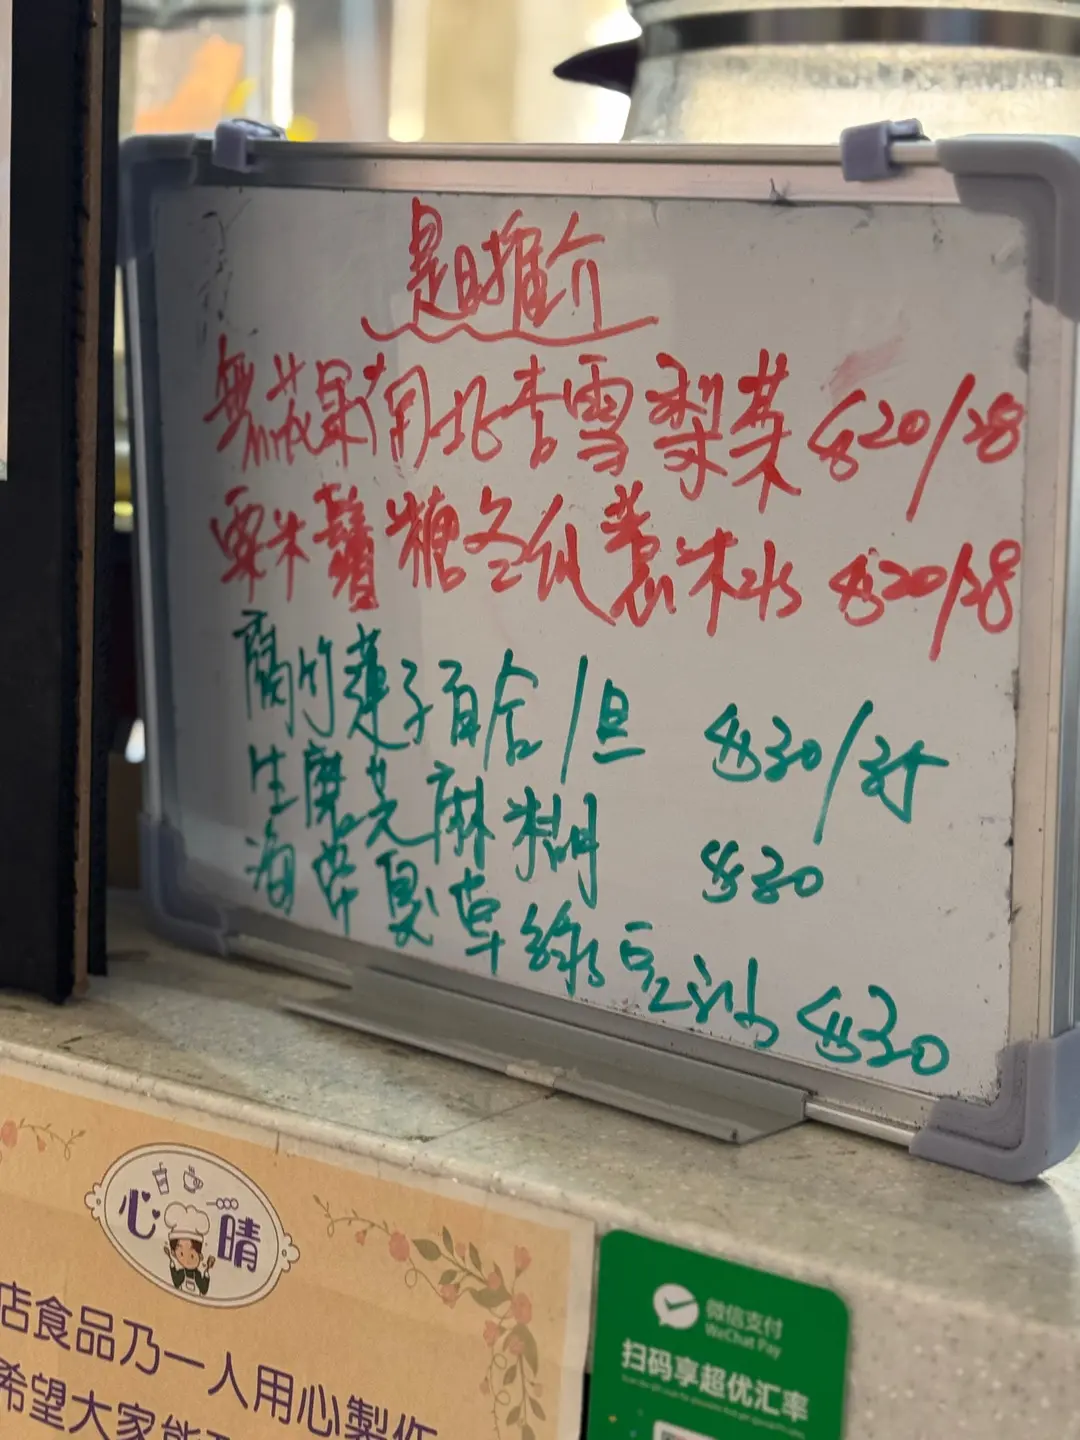 是日推介
無花果南北杏雪梨茶 $20/28
粟米鬚竹糖冬瓜薏米水 $20/28
腐竹蓮子百合/旦 $30/35
生磨芝麻糊 $30
海帶臭草綠豆沙 $30
心晴
店食品乃一人用心製作
希望大家能
微信支付
WeChat Pay
扫码享超优汇率